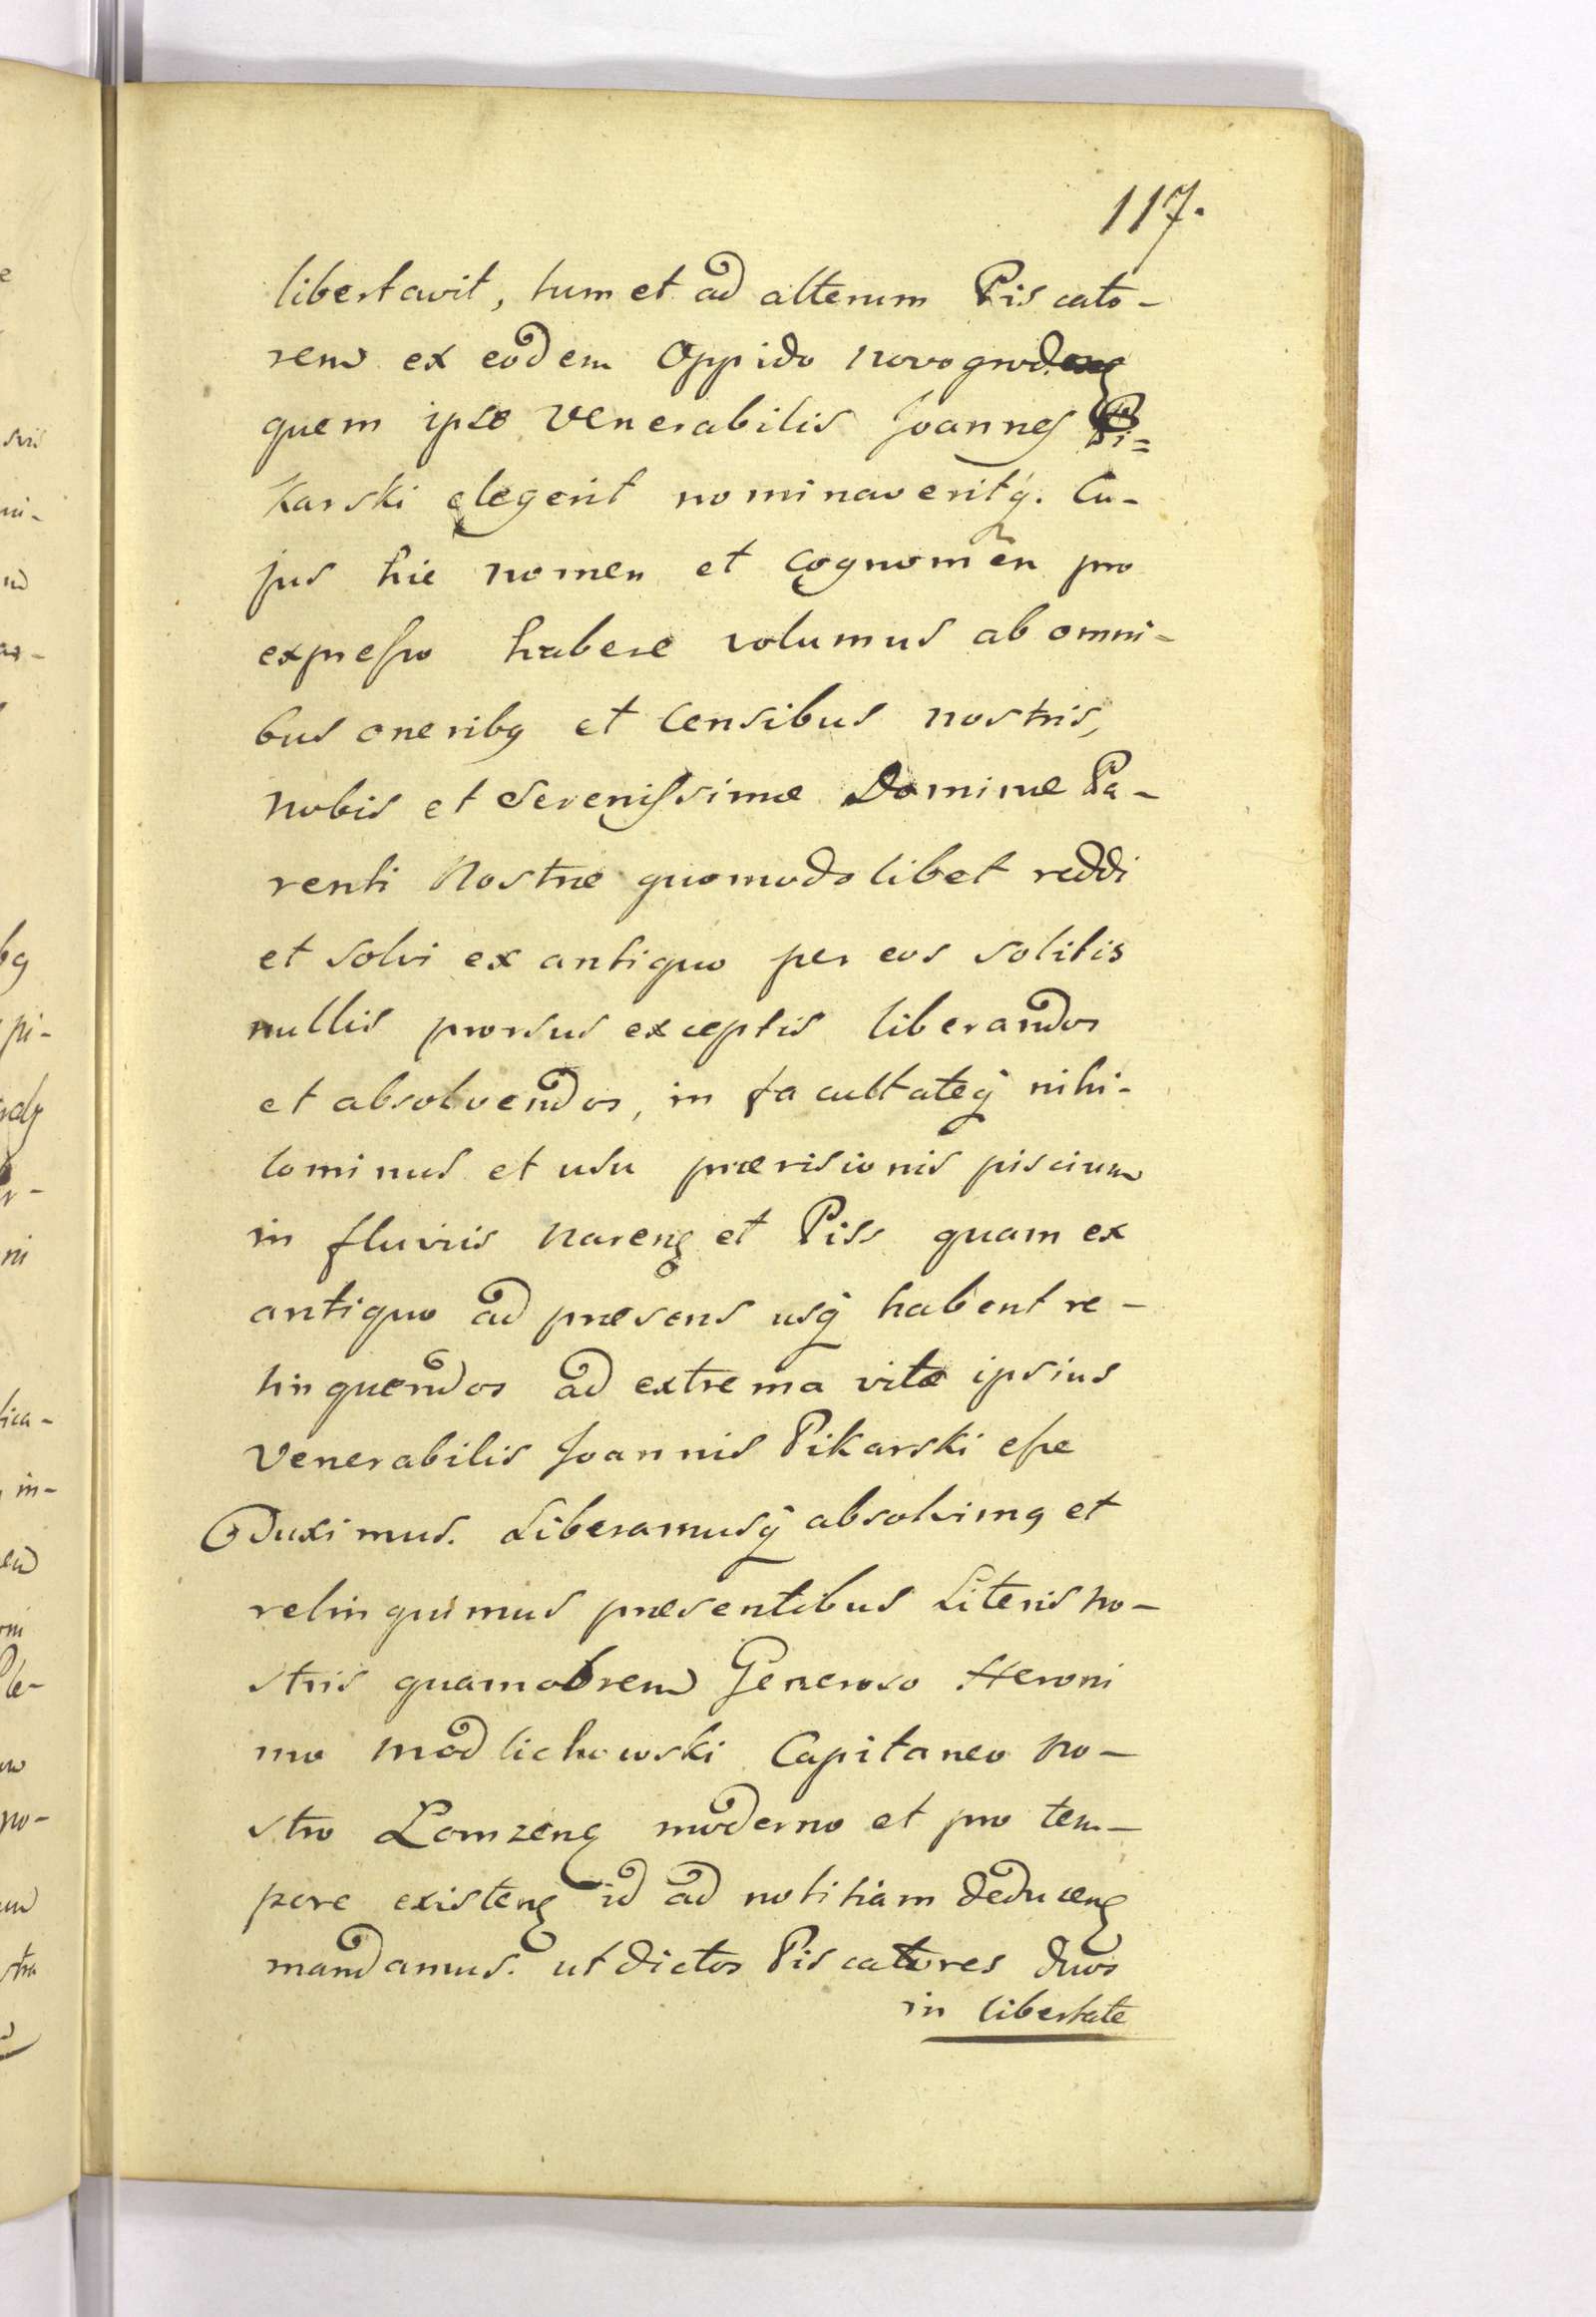 117.
libertavit, tum et ad alterum Piscato-
rem ex eodem Oppido novogrodeng
quem ipse Venerabilis Joannes Pi=
karski elegerit nominaveritq. Cu-
jus hic nomen et cognomen pro
expresso habere volumus ab omni-
bus oneribq et Censibus nostris,
nobis et Serenissimæ Dominæ Pa-
renti Nostræ quomodolibet reddi
et solvi ex antiquo per eos solitis
nullis prorsus exceptis liberandos
et absolvendos, in facultateq nihi-
lominus et usu prævisionis piscium
in fluviis nareng et Piss quam ex
antiquo ad præsens usq habent re-
linquendos ad extrema vitæ ipsius
Venerabilis Joannis Pikarski esse
Duximus. Liberamusq absolvimq et
relinquimus præsentibus Literis no-
stris quamobrem Generoso Heroni
mo modlichowski Capitaneo no-
stro Lomzeng moderno et pro tem-
pore existeng id ad notitiam deduceng
mandamus. ut dictos Piscatores duos
in libertate